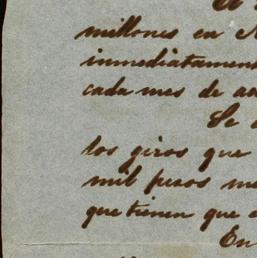 millones en
inmediatamen
cada mes de
Se
los giros que
mil pesos
que tienen que
En